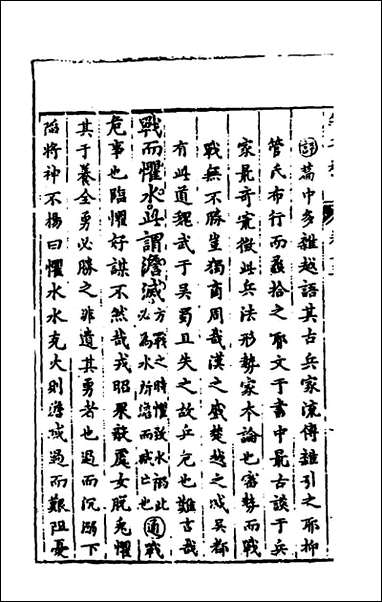 評篇中多雜越語其古兵家流傳雜引之耶抑
管氏布行而蠡拾之耶文于書中最古談于兵
家最奇宏權此兵法形勢家本論也審勢而戰
戰無不勝豈獨商周哉漢之威楚越之滅吳都
有此道魏武于吳蜀且失之故兵危也難古哉
戰而懼水此謂澹滅方戰之時懼致水禍此必為水所澹而滅亡也通戰
危事也臨懼好謀不然哉戎昭果毅處女脫兔懼
其于養全勇必勝之非遺其勇者也遇而沉溺下
陷將神不揚曰懼水水克火則澹滅遇而艱阻憂